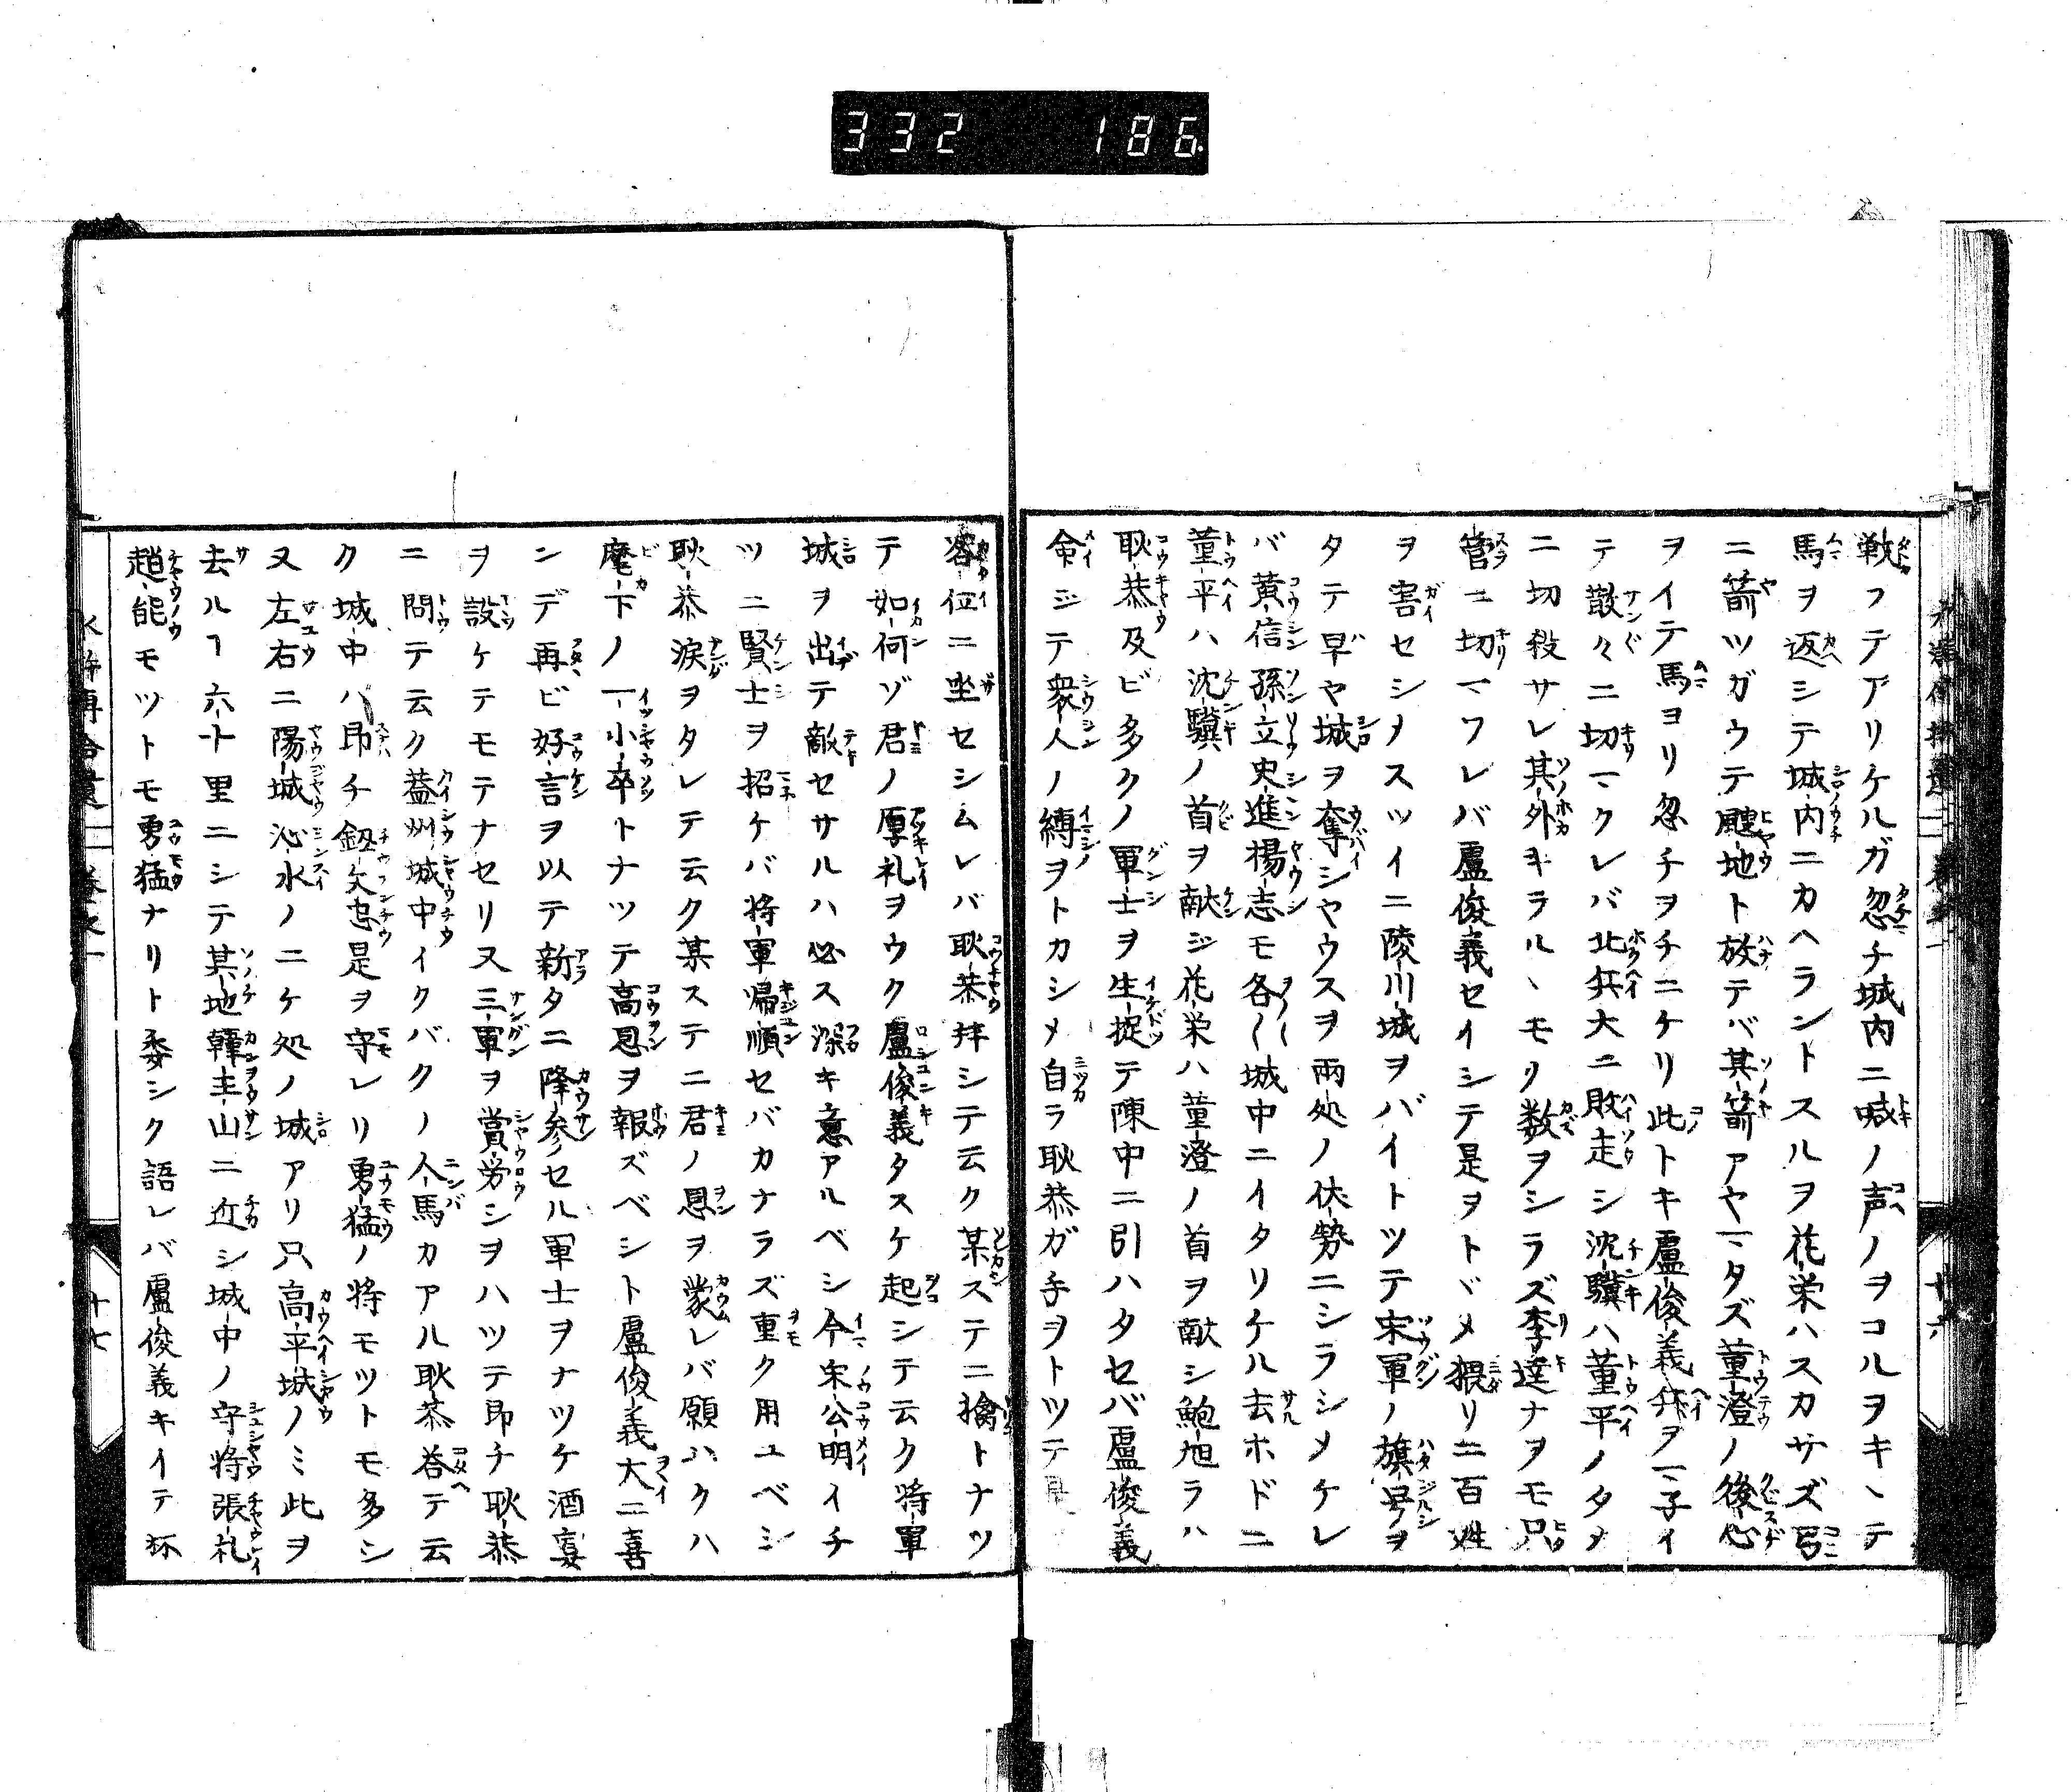 332 186
戦フテアリケルガ忽チ城内ニ喊ノ声ノヲコルヲキヽテ
馬ヲ返シテ城内ニカヘラントスルヲ花栄ハスカサズ弓
ニ箭ツガウテ颼地ト放テバ其箭アヤマタズ董澄ノ後心
ヲイテ馬ヨリ忽チヲチニケリ此トキ盧俊義兵ヲマ子イ
テ散々ニ切マクレバ北兵大ニ敗走シ沈驥ハ董平ノタメ
ニ切殺サレ其外キラルヽモノ数ヲシラズ李逵ナヲモ只
管ニ切マワレバ盧俊義セイシテ是ヲトヾメ猥リニ百姓
ヲ害セシメスツイニ陵川城ヲバイトツテ宋軍ノ旗号ヲ
タテ早ヤ城ヲ奪シヤウスヲ両処ノ伏勢ニシラシメケレ
バ黄信孫立史進楊志モ各〱城中ニイタリケル去ホドニ
董平ハ沈驥ノ首ヲ献ジ花栄ハ董澄ノ首ヲ献シ鮑旭ラハ
耿恭及ビ多クノ軍士ヲ生捉テ陳中ニ引ハタセバ盧俊義
命ジテ衆人ノ縛ヲトカシメ自ラ耿恭ガ手ヲトツテ
客位ニ坐セシムレバ耿恭拝シテ云ク某ステニ擒トナツ
テ如何ゾ君ノ厚礼ヲウク盧俊義タスケ起シテ云ク将軍
城ヲ出テ敵セサルハ必ス深キ意アルベシ今宋公明イチ
ツニ賢士ヲ招ケバ将軍帰順セバカナラズ重ク用ユベシ
耿恭涙ヲタレテ云ク某ステニ君ノ恩ヲ蒙レバ願ハクハ
麾下ノ一小卒トナツテ高恩ヲ報ズベシト盧俊義大ニ喜
ンデ再ビ好言ヲ以テ新タニ降参セル軍士ヲナツケ酒宴
ヲ設ケテモテナセリ又三軍ヲ賞労シヲハツテ即チ耿恭
ニ問テ云ク蓋州城中イクバクノ人馬カアル耿恭答テ云
ク城中ハ即チ鈕文忠是ヲ守レリ勇猛ノ将モツトモ多シ
又左右ニ陽城沁水ノニケ処ノ城アリ只高平城ノミ此ヲ
去ルヿ六十里ニシテ其地韓王山ニ近シ城中ノ守将張礼
趙能モツトモ勇猛ナリト委シク語レバ盧俊義キイテ杯
十七